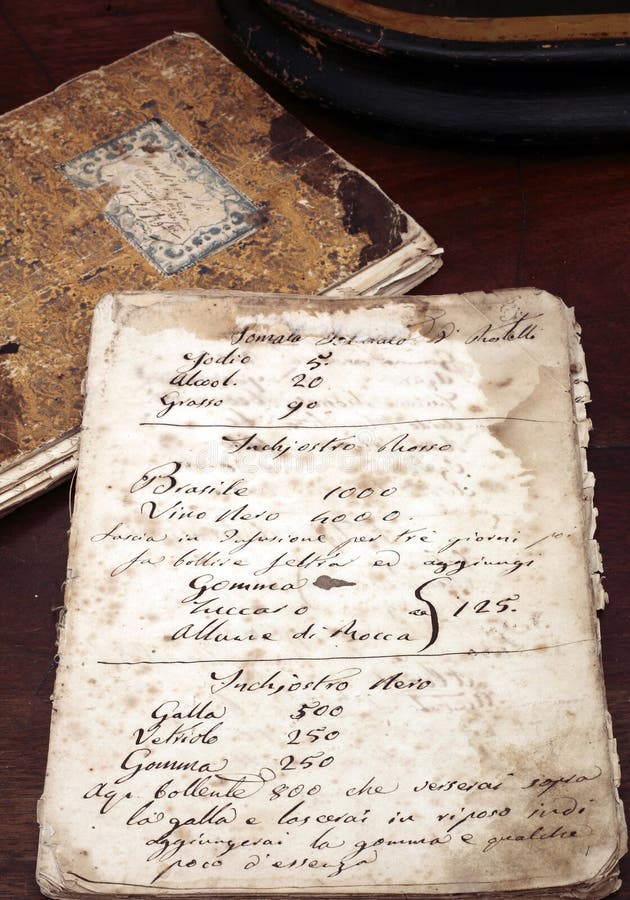 di Rostelli
Jodio 5.
Alcool. 20
Grasso 90
Inchjostro Rosso
Brasile 1000
Vino Nero 4000.
Lascia in Infusione per tre giorni poi
fa bollire feltra ed aggiungi
Gomma
Zuccaro
Allume di Rocca
aa } 125.
Inchjostro Nero
Galla 500
Vetriolo 250
Gomma 250
Aqu bollente 800 che verserai sopra
la galla e lascerai in riposo indi
aggiungerai la gomma e qualche
poco d'essenza